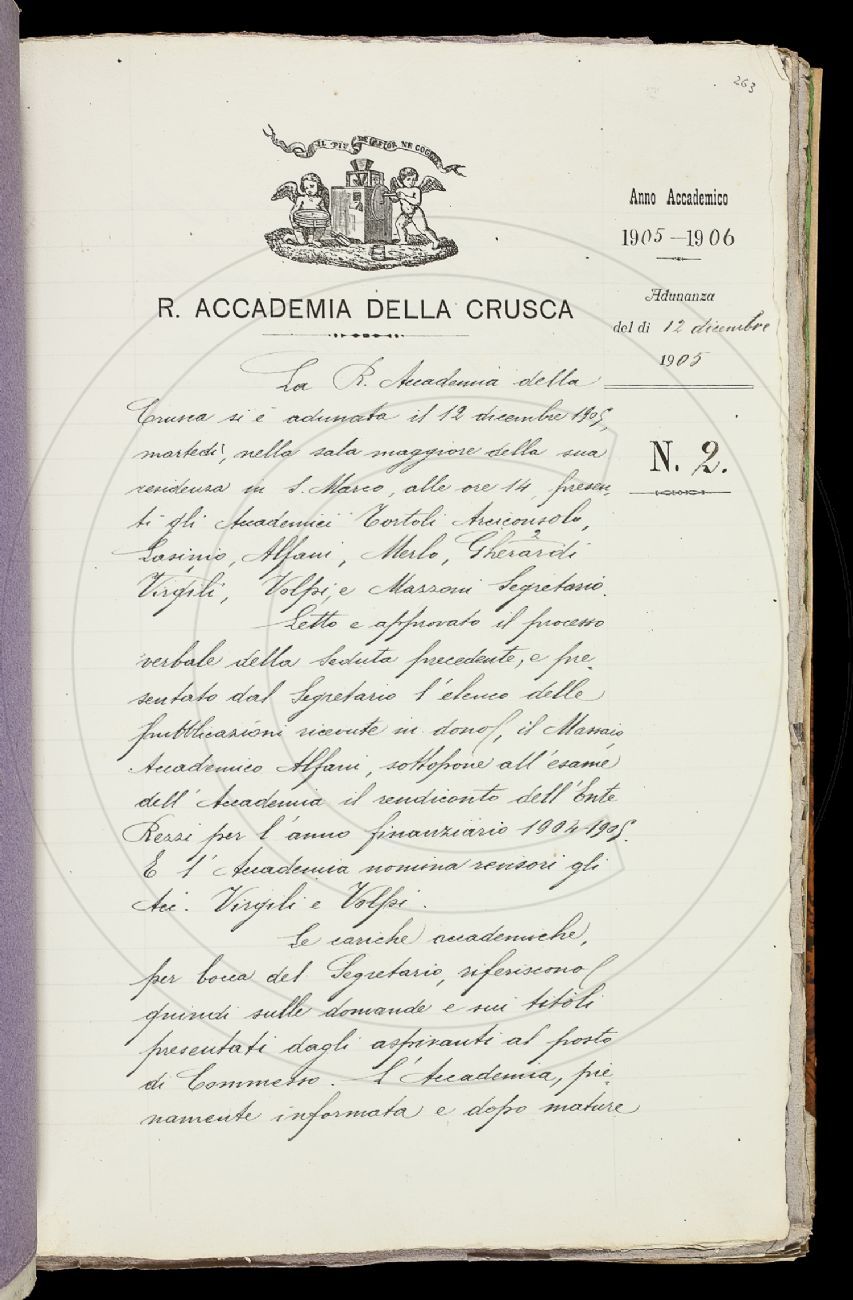 263
IL PIÙ BEL FIOR NE COGLIE
R. ACCADEMIA DELLA CRUSCA
Anno Accademico
1905-1906
Adunanza
del dì 12 dicembre
1905
N. 2.
La R. Accademia della
Crusca si è adunata il 12 dicembre 1905,
martedì, nella sala maggiore della sua
residenza in S. Marco, alle ore 14, presen-
ti gli Accademici Tortoli Arciconsolo,
Lasinio, Alfani, Merlo, Gherardi
Virgili, Volpi, e Mazzoni Segretario.
Letto e approvato il processo
verbale della seduta precedente, e pre-
sentato dal Segretario l'elenco delle
pubblicazioni ricevute in dono, il Massaio,
Accademico Alfani, sottopone all'esame
dell'Accademia il rendiconto dell'Ente
Rezzi per l'anno finanziario 1904-1905.
E l'Accademia nomina censori gli
Acc. Virgili e Volpi.
Le cariche accademiche,
per bocca del Segretario, riferiscono
quindi sulle domande e sui titoli
presentati dagli aspiranti al posto
di Commesso. L'Accademia, pie-
namente informata e dopo mature